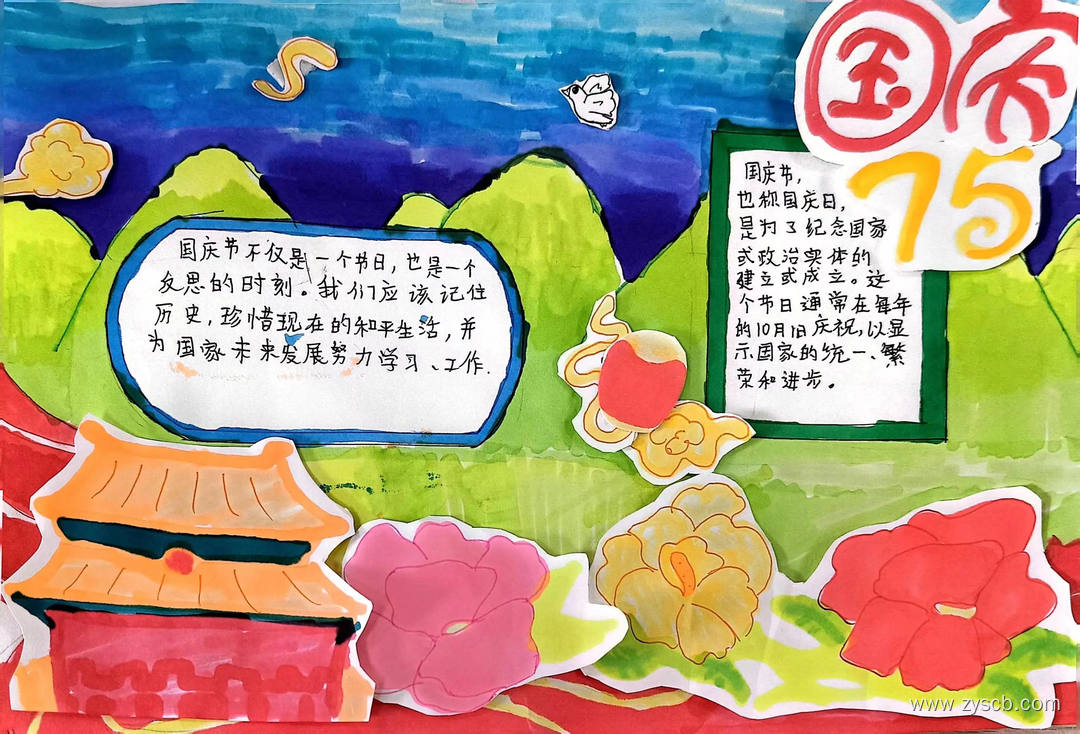 国庆
75
国庆节不仅是一个节日,也是一个
反思的时刻。我们应该记住
历史,珍惜现在的和平生活,并
为国家未来发展努力学习、工作.
国庆节,
也称国庆日,
是为了纪念国家
或政治实体的
建立或成立。这
个节日通常在每年
的10月1日庆祝,以显
示国家的统一、繁
荣和进步。
www.zyscb.com